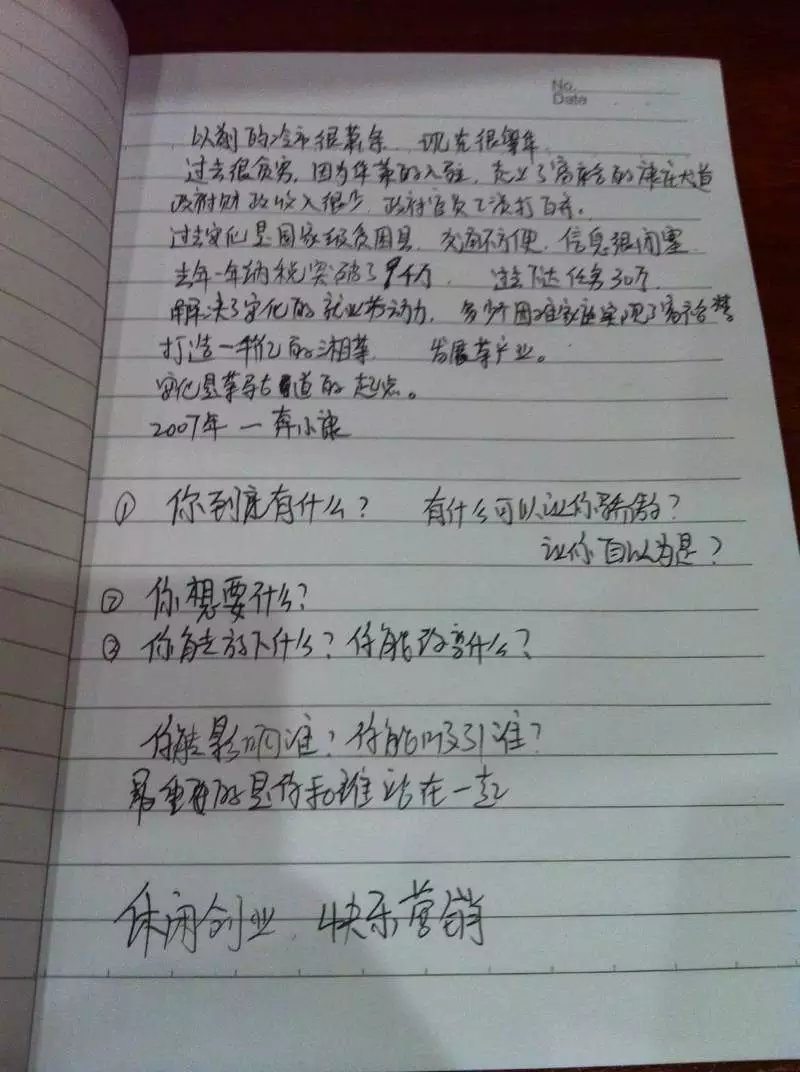 No.
Date
以前的冷市很萧条 现在很繁华
过去很贫穷,因为华莱的入驻,走上了富裕的康庄大道
政府财政收入很少,政府官员工资打白条。
过去安化是国家级贫困县,交通不方便,信息很闭塞
去年一年纳税突破了9千万 下达任务30万
解决了安化的就业劳动力,多少困难家庭实现了富裕梦
打造一千亿的湘莱 发展茶产业。
安化是茶马古道的起点。
2007年 一奔小康
① 你到底有什么? 有什么可以让你骄傲?
让你自以为是?
② 你想要什么?
③ 你能放下什么?你能改变什么?
你能影响谁?你能吸引谁?
最重要的是你和谁站在一起
休闲创业、快乐营销